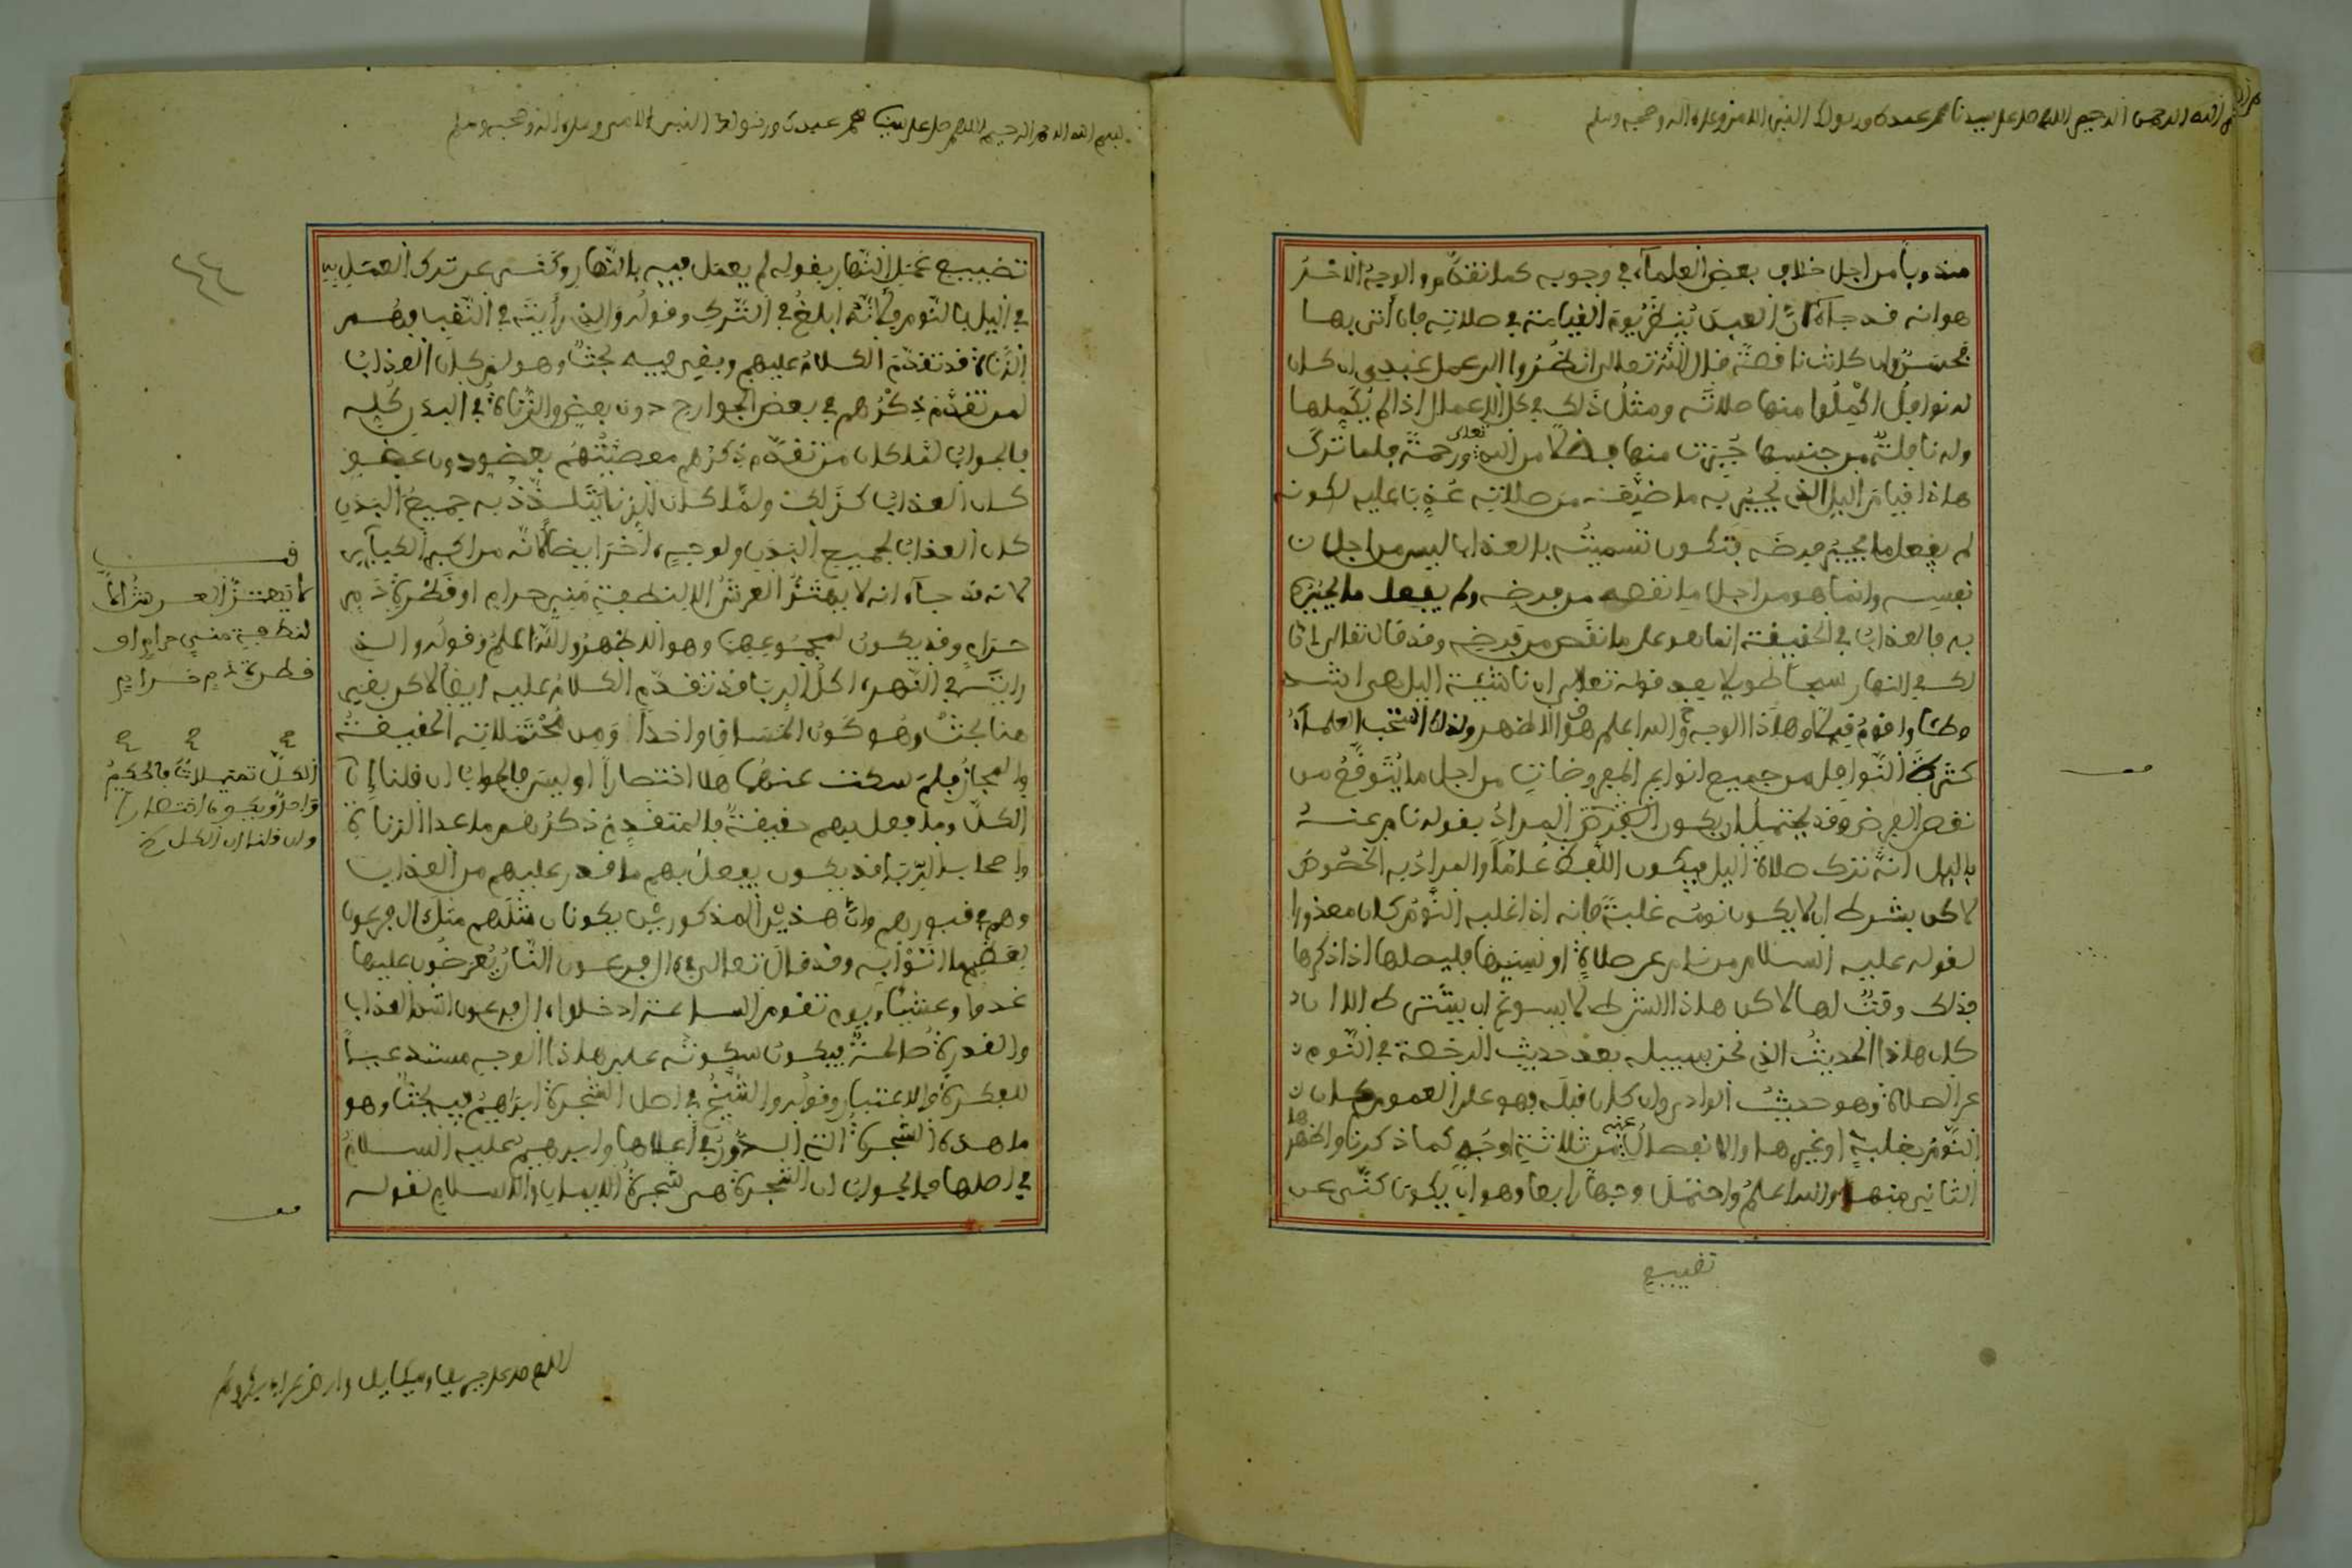 بسم الله الرحمن الرحيم اللهم صل على سيدنا محمد عبدك ورسولك النبي الامي وعلى ءاله وصحبه وسلم
مندوباً من اجل خلاف بعض العلماء في وجوبه كما تقدم والوجه الاخر
هو انه قد جاء انّ العبد يُنظر يوم القيامة في صلاته فان أتى بها
فحسن وان كانت ناقصة قال الله تعالى انظروا الى عمل عبدي ان كان
له نوافل اكمِلُوا منها صلاته ومثل ذلك في كل الاعمال اذا لم يُكملها
وله نافلة من جنسها جُبرت منها فضلا من الله تعالى ورحمة فلما ترك
هاذا قيام اليل الذي يجبر به ما ضيّعه من صلاته عُذِّب عليه لكونه
لم يفعل ما يجبر فرضه فتكون تسميته بالعذاب ليس من اجل
نفسه وانما هو من اجل ما نقصه من فرضه ولم يفعل ما يجبره
به فالعذاب في الحقيقة انما هو على ما نقص من فرضه وقد قال تعالى ان
لك في النهار سبحا طويلا بعد قوله تعالى ان ناشئة اليل هي اشد
وطئا واقوم قيلا وهاذا الوجه والله اعلم هو الاظهر ولذلك استحب العلماء
كثرة النوافل من جميع انواع المفروضات من اجل ما يُتوقّع من
نقص الفرض وقد يحتمل ان يكون الغرض المراد بقوله نام عنه
باليل انه ترك صلاة اليل فيكون اللفظ عامّاً والمراد به الخصوص
لاكن بشرط ان لا يكون نومه غلبة فانه اذا غلبه النوم كان معذورا
لقوله عليه السلام من نام عن صلاة او نسيها فليصلها اذا ذكرها
فذلك وقت لها لاكن هاذا الشرط لا يسوغ ان يشترط الا ان
كان هاذا الحديث الذي نحن بسبيله بعد حديث الرخصة في النوم
عن الصلاة وهو حديث الوادي وان كان قبله فهو على العموم كان
النوم بغلبة او بغيرها والانفصال عنه من ثلاثة اوجه كما ذكرنا واظهرها
الثاني منها والله اعلم واحتمل وجها رابعا وهو ان يكون كنّى عن
تضييع
بسم الله الرحمن الرحيم اللهم صل على سيدنا محمد عبدك ورسولك النبي الامي وعلى ءاله وصحبه وسلم
تضييع عمل النهار بقوله لم يعمل فيه بالنهار وكنى عن ترك العمل به
في اليل بالنوم لانّه ابلغ في الترك وقوله والذي رأيته في الثقب فهم
الزناة قد تقدم الكلام عليهم وبقي فيه بحث وهو لم كان العذاب
لمن تقدم ذكرهم في بعض الجوارح دون بعض والزناة في البدن كله
فالجواب لما كان من تقدم ذكرهم معصيتهم بعضو دون عضو
كان العذاب كذلك ولما كان الزنا يتلذذ به جميع البدن
كان العذاب لجميع البدن ولوجه ءاخر ايضا لانه من اكبر الكبائر
لانه قد جاء انه لا يهتز العرش الا لنطفة مني حرام او قطرة دم
حرام وقد يكون لمجموعهما وهو الاظهر والله اعلم وقوله والذي
رايته في النهر ءاكل الربا قد تقدم الكلام عليه ايضا لاكن بقي
هنا بحث وهو كون المساق واحدا ومن محتملاته الحقيقة
والمجاز فلم سكت عنهما هل اختصارا او ليس فالجواب ان قلنا إن
الكل وما فعل بهم حقيقة فالمتقدم ذكرهم ما عدا الزناة
واصحاب الربا قد يكون يفعل بهم ما قدر عليهم من العذاب
وهم في قبورهم وانّ هذين المذكورين يكونان مثلهم مثل ءال فرعون
وقد قال تعالى في ءال فرعون النار يعرضون عليها
غدوا وعشيا ويوم تقوم الساعة ادخلوا ءال فرعون اشد العذاب
والقدرة صالحة فيكون سكوته على هاذا الوجه مستدعيا
للفكرة والاعتبار وقوله والشيخ في اصل الشجرة ابراهيم فيه بحث وهو
ما هذه الشجرة التي الدور في أعلاها وابرهيم عليه السلام
في اصلها فالجواب ان الشجرة هي شجرة الايمان والاسلام لقوله
قف
لا يهتز العرش الا
لنطفة مني حرام او
قطرة دم حرام
الكل تمثيلا فالحكم
واحد ويكون اختصارا
وان قلنا ان الكل
اللهم صل على جبريل وميكايل